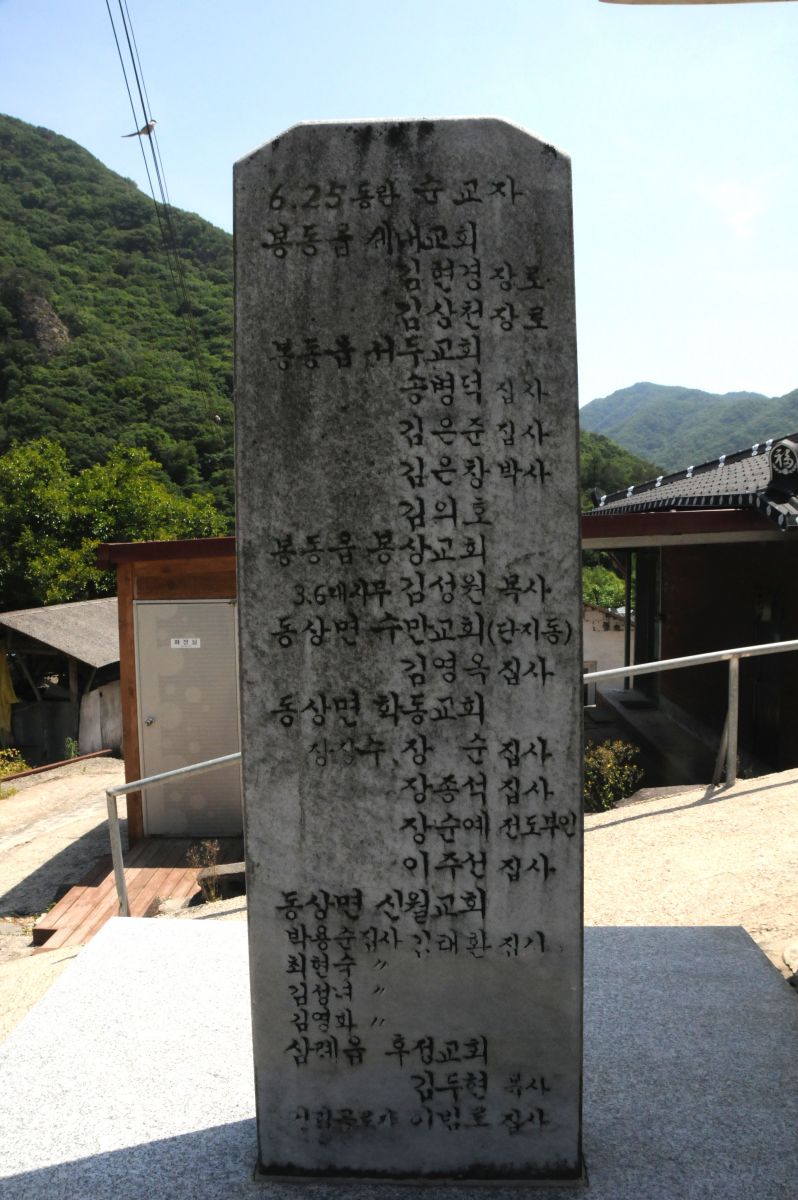 6.25동란 순교자
봉동읍 세내교회
김현경 장로
김상천 장로
봉동읍 서두교회
송병덕 집사
김은준 집사
김은창 박사
김의호
봉동읍 봉상교회
3.6대시무 김성원 목사
동상면 수만교회(단지동)
김영옥 집사
동상면 학동교회
장장수, 장 순 집사
장종석 집사
장순예 전도부인
이주선 집사
동상면 신월교회
박용순집사 김태환 집기
최현숙 〃
김성녀 〃
김영화 〃
삼례읍 후정교회
김두현 목사
이림로 집사
화장실
福